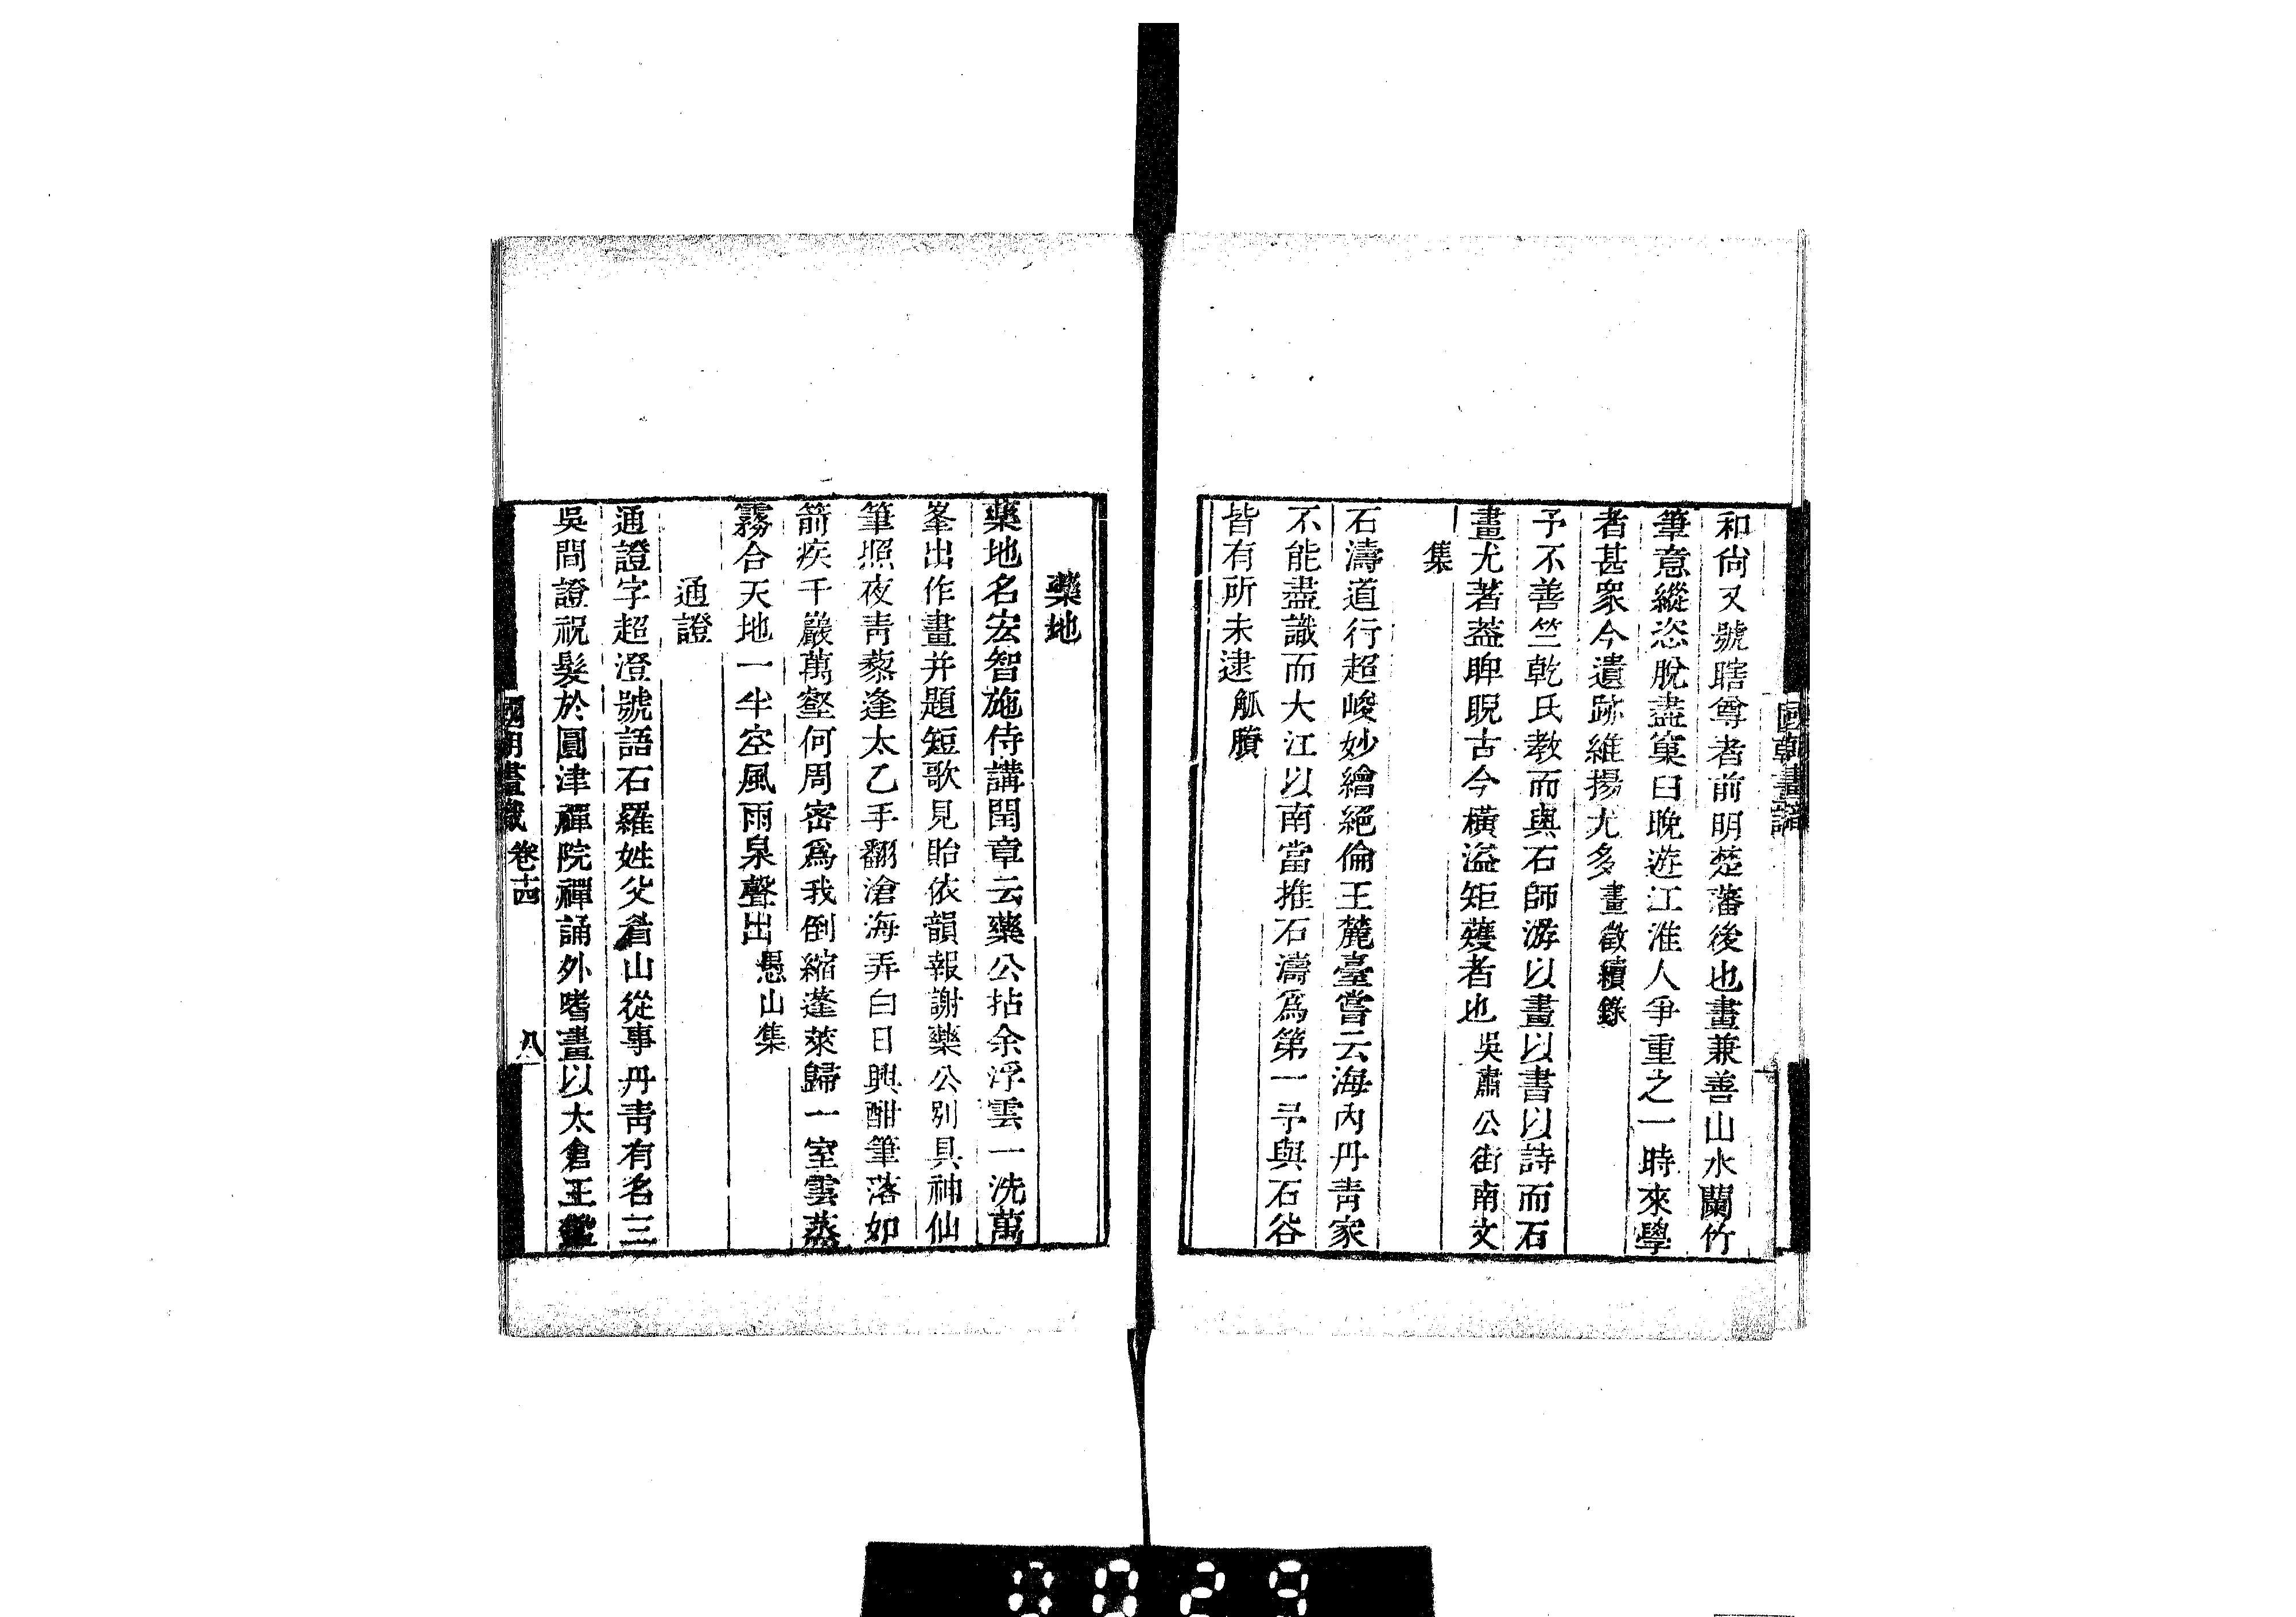 國朝畫識
和尙又號瞎尊者前明楚藩後也畫兼善山水蘭竹
筆意縱恣脫盡窠臼晚遊江淮人爭重之一時來學
者甚衆今遺跡維揚尤多畫徵續錄
予不善竺乾氏教而與石師游以畫以書以詩而石
畫尤著葢睥睨古今橫溢矩矱者也吳肅公街南文
集
石濤道行超峻妙繪絕倫王麓臺嘗云海內丹青家
不能盡識而大江以南當推石濤爲第一予與石谷
皆有所未逮觚賸
藥地
藥地名宏智施侍講閏章云藥公拈余浮雲一洗萬
峯出作畫并題短歌見貽依韻報謝藥公別具神仙
筆照夜靑藜逢太乙手翻滄海弄白日興酣筆落如
箭疾千巖萬壑何周密爲我倒縮蓬萊歸一室雲蒸
霧合天地一半空風雨泉聲出愚山集
通證
通證字超澄號語石羅姓父眉山從事丹靑有名三
吳間證祝髮於圓津禪院禪誦外嗜畫以太倉王鑒
國朝畫識 卷十四 八
0029